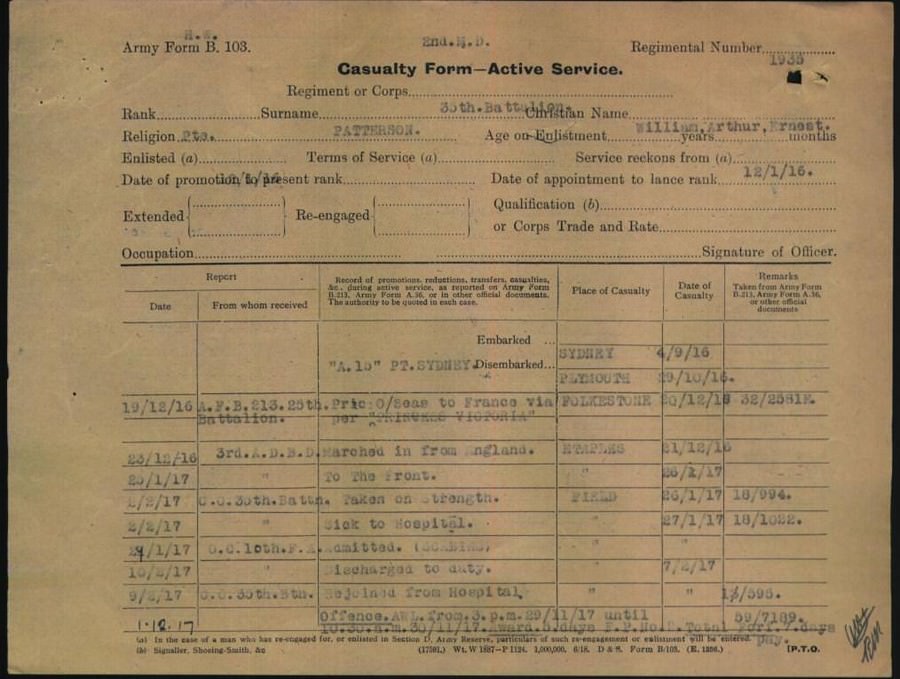 H.Q.
Army Form B. 103.
2nd.M.D.
Regimental Number
1935
Casualty Form—Active Service.
Regiment or Corps
35th.Battalion.
Rank Surname Christian Name
Religion Pte. PATTERSON. Age on Enlistment years months
William,Arthur,Ernest.
Enlisted (a) Terms of Service (a) Service reckons from (a)
Date of promotion to present rank Date of appointment to lance rank
12/1/16.
Extended Re-engaged Qualification (b)
or Corps Trade and Rate
Occupation Signature of Officer.
Report
Date From whom received
Record of promotions, reductions, transfers, casualties,
&c., during active service, as reported on Army Form
B.213, Army Form A.36, or in other official documents.
The authority to be quoted in each case.
Place of Casualty
Date of
Casualty
Remarks
Taken from Army Form
B.213, Army Form A.36,
or other official
documents
Embarked ... SYDNEY 4/9/16
"A.15" PT.SYDNEY. Disembarked... PLYMOUTH 29/10/16.
19/12/16 A.F.B.213.25th. O/Seas to France via FOLKESTONE 32/2581E.
Battalion. per "PRINCESS VICTORIA"
23/12/16 3rd.A.D.B.D. Marched in from England. ETAPLES 21/12/16
25/1/17 " To The Front. " 26/1/17
2/2/17 C.O.35th.Battn. Taken on Strength. FIELD 26/1/17 18/994.
2/2/17 " Sick to Hospital. " 27/1/17 18/1022.
O.C.10th.F.A. Admitted. (SCABIES) " "
10/2/17 " Discharged to duty. 7/2/17
9/2/17 C.O.35th.Btn. Rejoined from Hospital " "
1.12.17 Offence.AWL.from.3.p.m.29/11/17 until 59/7189.
10.30.a.m.30/11/17. Award. days F.P.No. Total For. 7.days
pay.
(a) In the case of a man who has re-engaged for, or enlisted in Section D, Army Reserve, particulars of such re-engagement or enlistment will be entered
(b) Signaller, Shoeing-Smith, &c (17591.) Wt. W 1887—P 1124. 1,000,000. 6/18. D & S. Form B/103. (E. 1256.) [P.T.O.